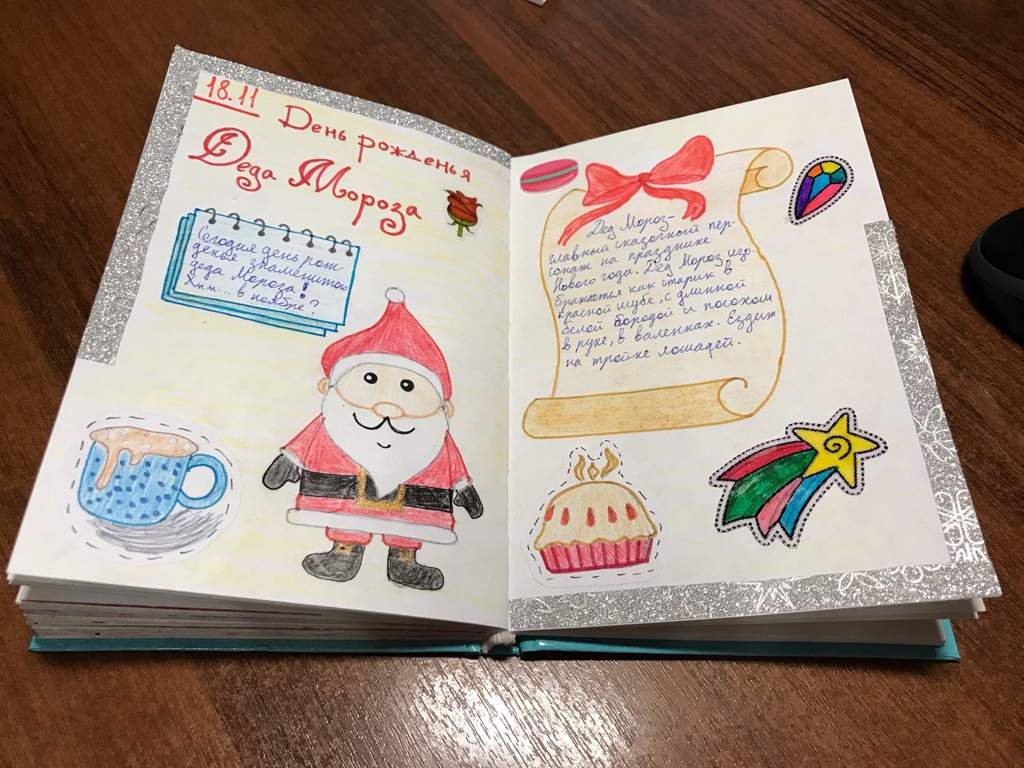 18.11
День рожденья
Деда Мороза
Сегодня день рож
денье знаменитого
деда Мороза!
Хмм... в ноябре?
Дед Мороз-
главный сказочный пер-
сонаж на празднике
Нового года. Дед Мороз изо-
бражается как старик в
красной шубе, с длинной
белой бородой и посохом
в руке, в валенках. Ездит
на тройке лошадей.